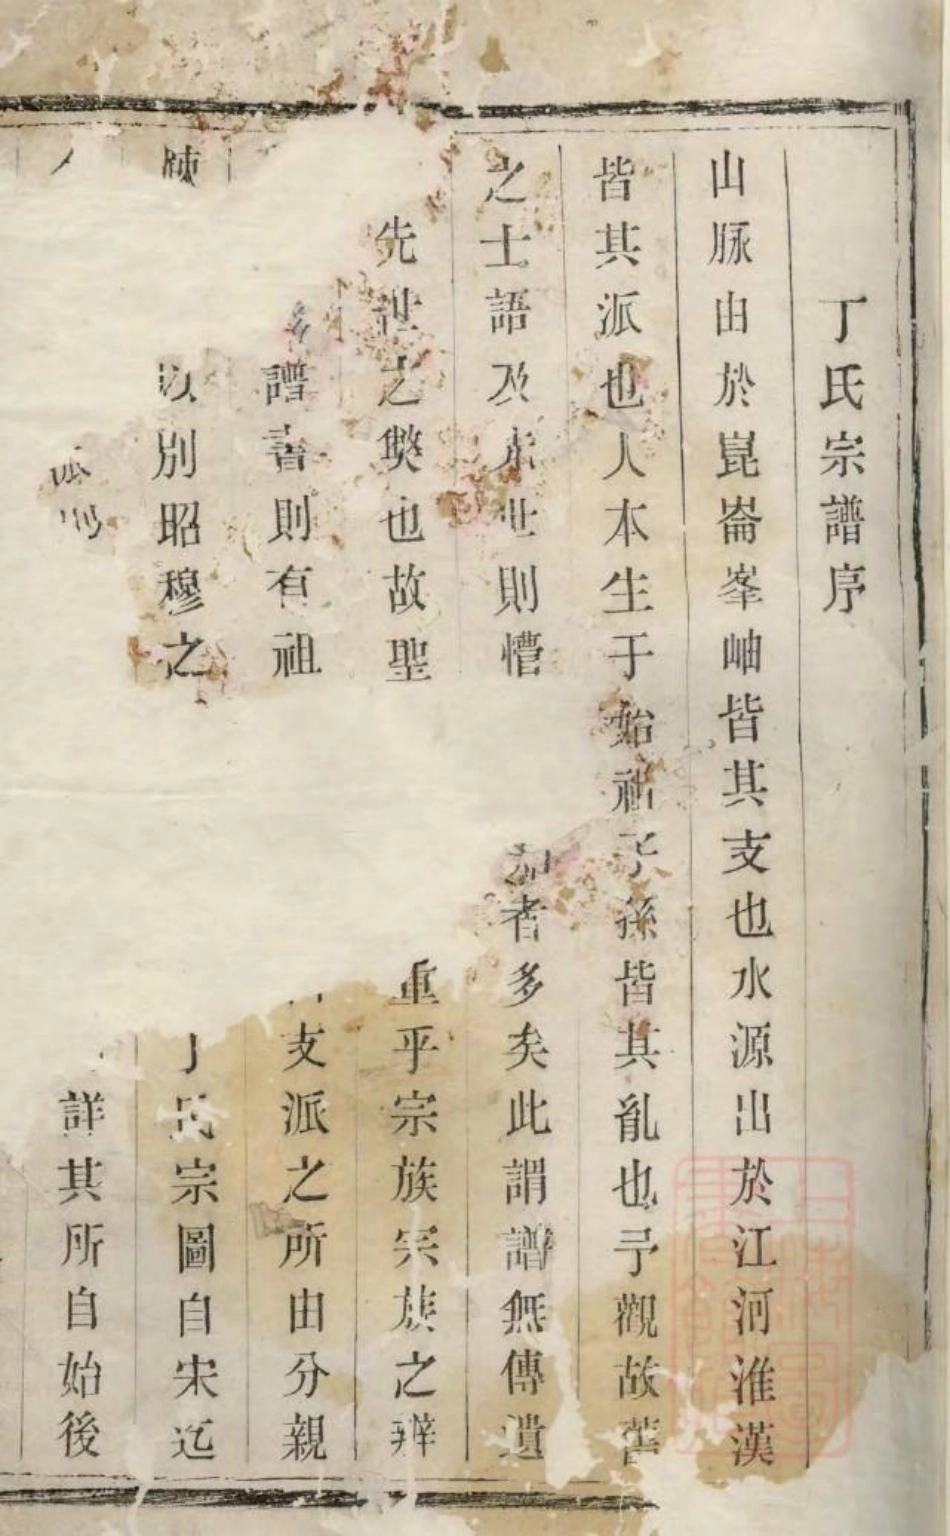 丁氏宗譜序
山脉由於崑崙峯岫皆其支也水源出於江河淮漢
皆其派也人本生于始祖子孫皆其胤也予觀故舊
之士語及 世則懵 者多矣此謂譜無傳遺
先世之獘也故聖 重乎宗族宗族之辨
譜書則有祖 支派之所由分親
陳 以別昭穆之 丁氏宗圖自宋迄
詳其所自始後